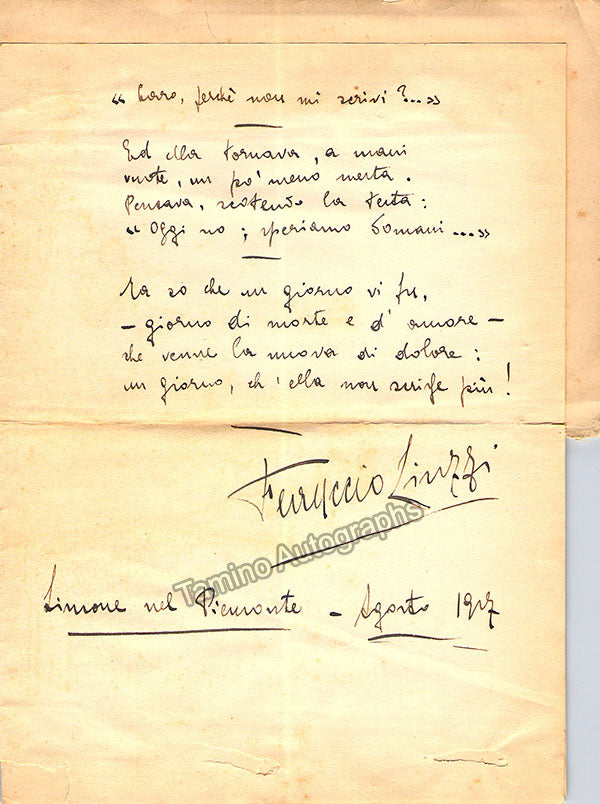 « Caro, perchè non mi scrivi ?... »
Ed ella tornava, a mani
vuote, un po' meno mesta.
Pensava, scotendo la testa:
« Oggi no ; speriamo domani .... »
Ma so che un giorno vi fu,
– giorno di morte e d'amore –
che venne la nuova di dolore :
un giorno, ch'ella non scrisse più !
Ferruccio Liuzzi
Tamino Autographs
Limone nel Piemonte – Agosto 1917